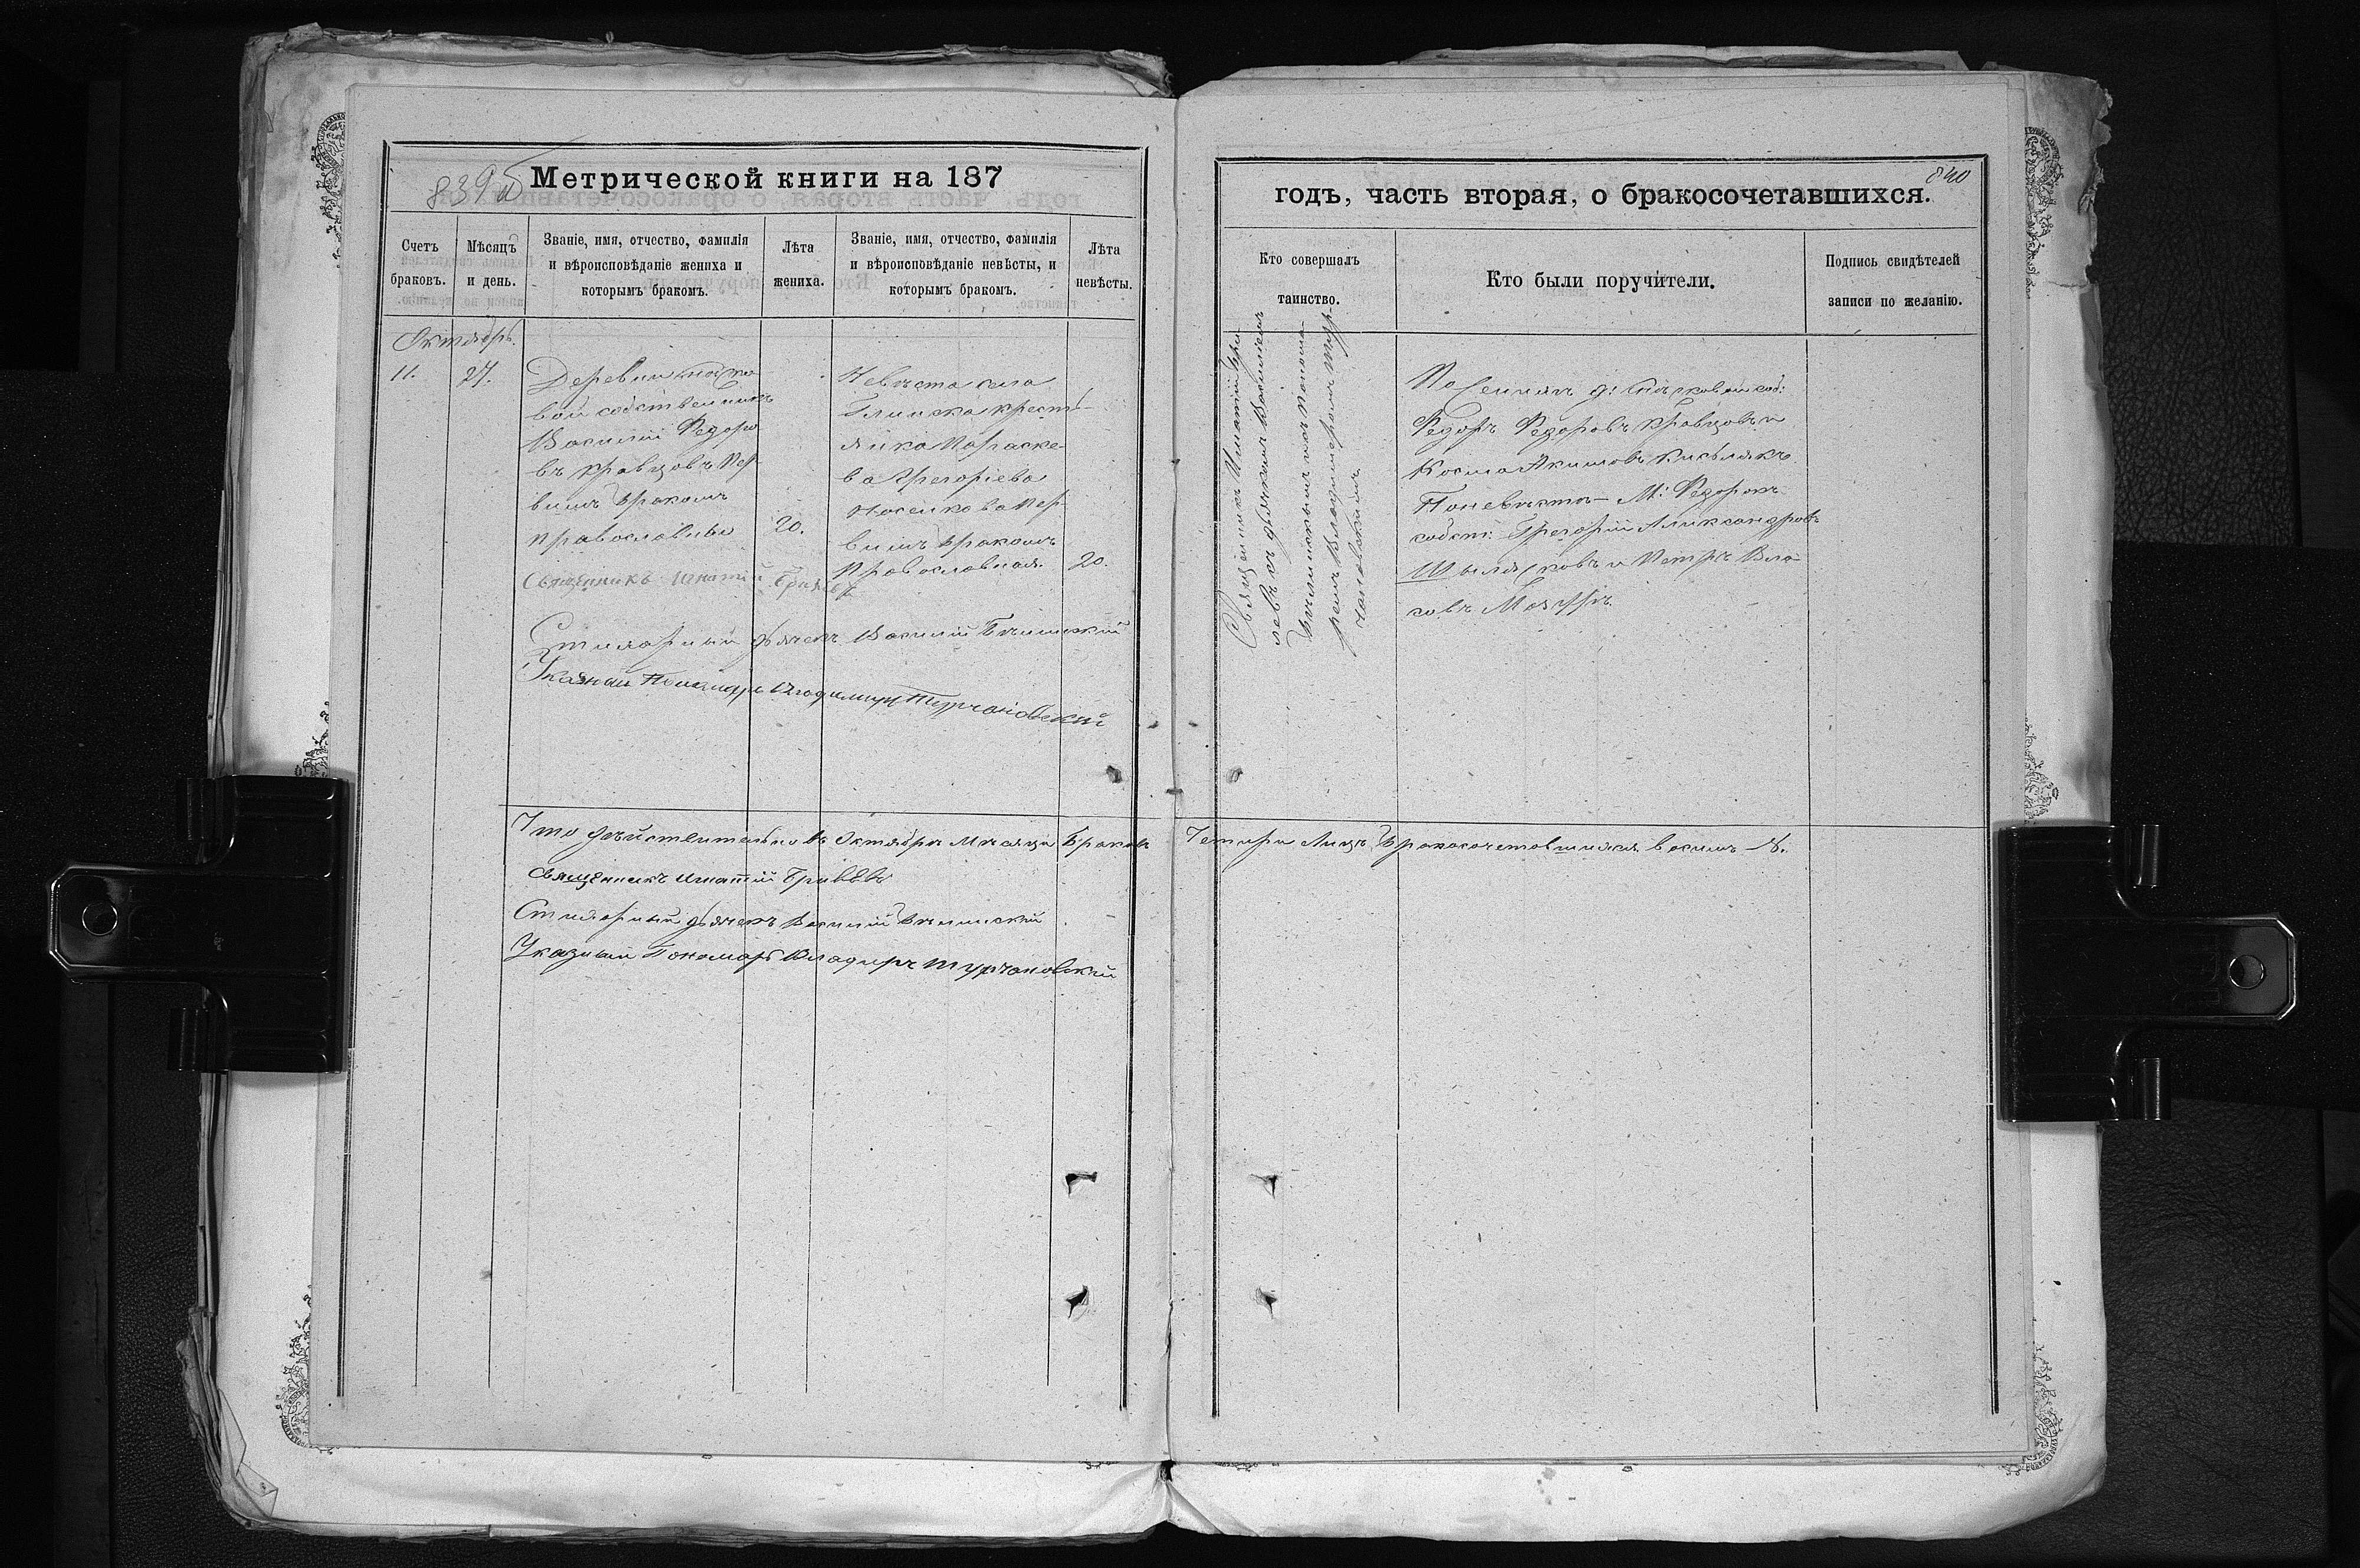 839 об
Метрической книги на 187
Счетъ браковъ.
Мѣсяцъ и день.
Званіе, имя, отчество, фамилія и вѣроисповѣданіе жениха и которымъ бракомъ.
Лѣта жениха.
Званіе, имя, отчество, фамилія и вѣроисповѣданіе невѣсты, и которымъ бракомъ.
Лѣта невѣсты.
Октябрь.
11.
27.
Деревни
вой собственникъ
Василій Федоро
въ Кравцовъ пер
вымъ бракомъ
православны
20.
Невѣста села
Глинска кресть-
янка Параске-
ва Григоріева
Носенкова пер-
вымъ бракомъ
православная.
20.
Священникъ Игнатій
Стихарный дьячекъ Василій
Указный Пономарь Владимиръ Турчановскій
Что дѣйствительно въ Октябрѣ мѣсяцѣ браковъ
Священникъ Игнатій
Стихарный дьячекъ Василій
Указный Пономарь Владимръ Турчановскій
840
годъ, часть вторая, о бракосочетавшихся.
Кто совершалъ таинство.
Кто были поручители.
Подпись свидѣтелей записи по желанію.
Священникъ Игнатій
съ дьячкомъ Василіемъ
и понома-
ремъ Владимиромъ Тур-
чановскимъ.
По
Федоръ Федоровъ Кравцовъ и
Косма Акимовъ
По невѣстѣ — Федоровъ
собст: Григорій Александровъ
и Петръ Вла
совъ
четыри лицъ бракосочетовшихся восимъ 8.